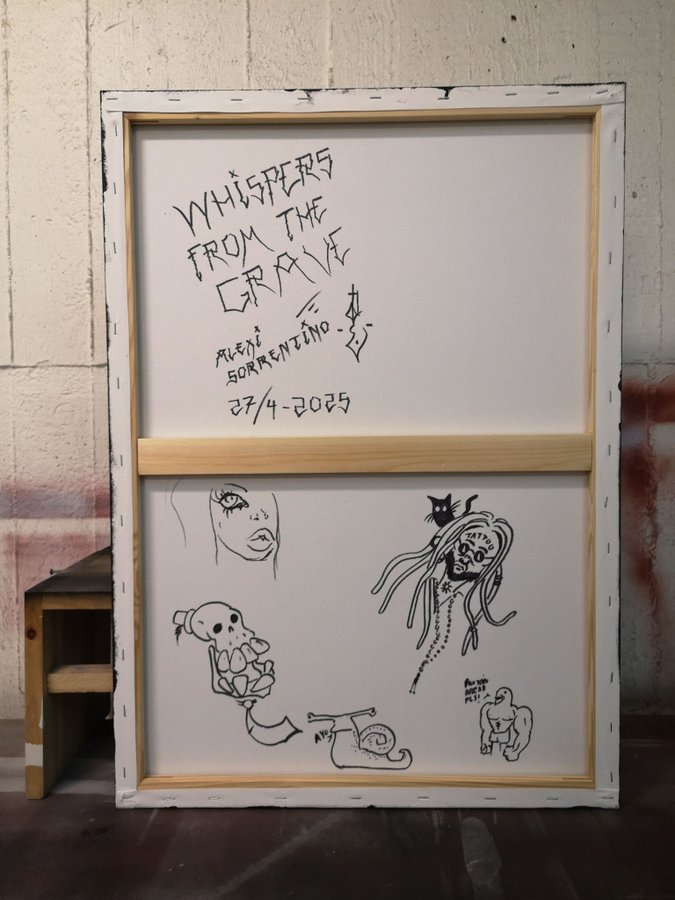 WHiSPERS
FROM THE
GRAVE
ALEXi
SORRENTiNO
27/4-2025
TATTOU
AYO